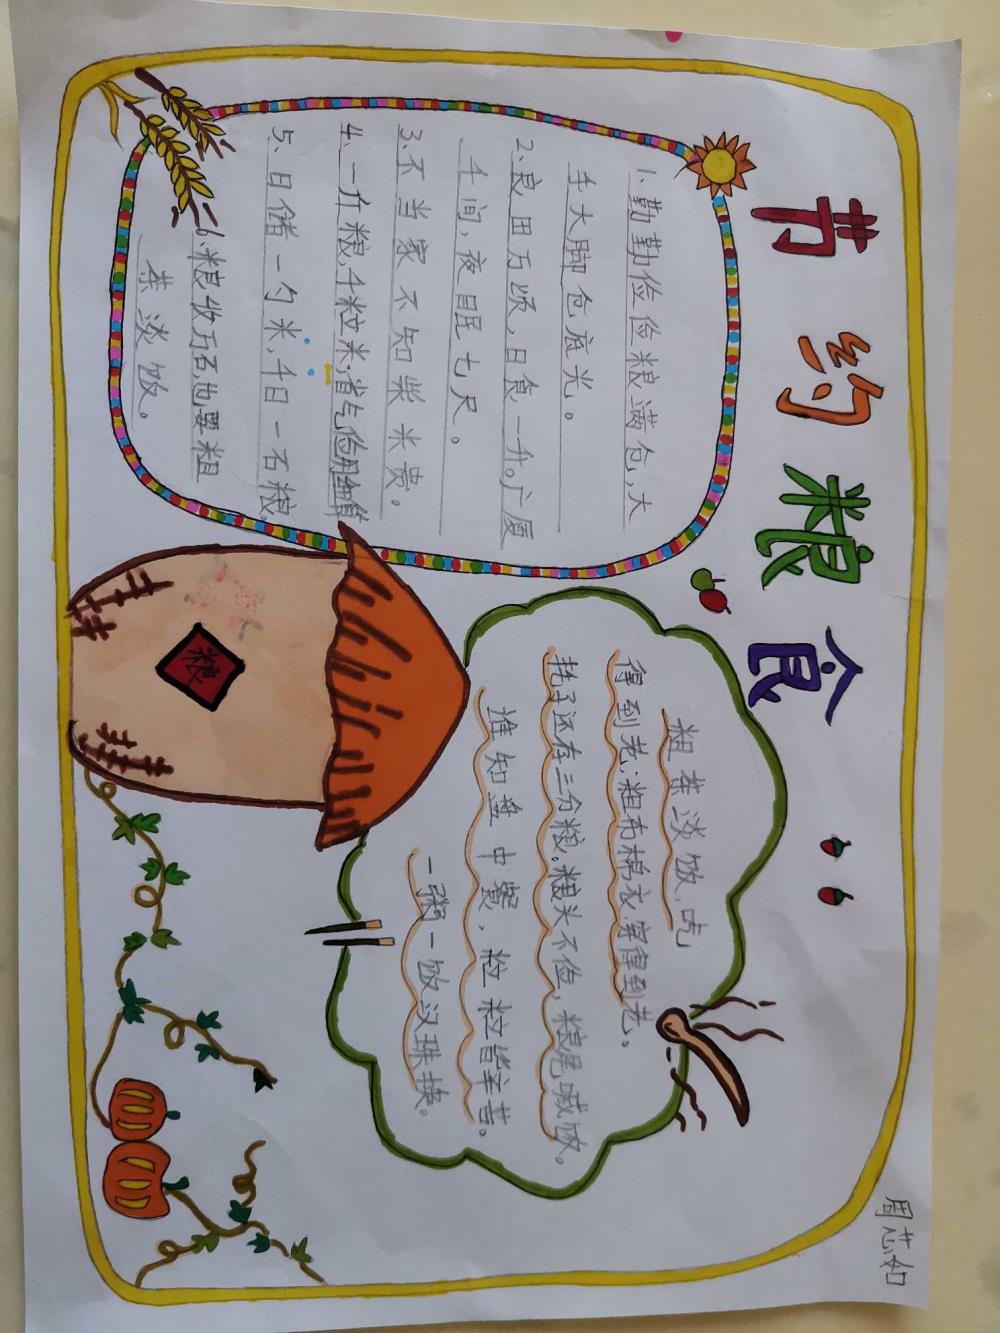 节约粮食
1.勤勤俭俭粮满仓,大
手大脚仓底光。
2.良田万顷,日食一升。广厦
千间,夜眠七尺。
3.不当家不知柴米贵。
4.一升粮,千粒米,省吃俭用细算
5.日储一勺米,千日一石粮
6.粮收万石,也要粗
茶淡饭。
粮
粗茶淡饭,吃
得到老;粗布棉衣,穿得到老。
耗子还存三分粮。粮头不俭,粮尾喊饿。
谁知盘中餐,粒粒皆辛苦。
一粥一饭汉珠换。
周芯如